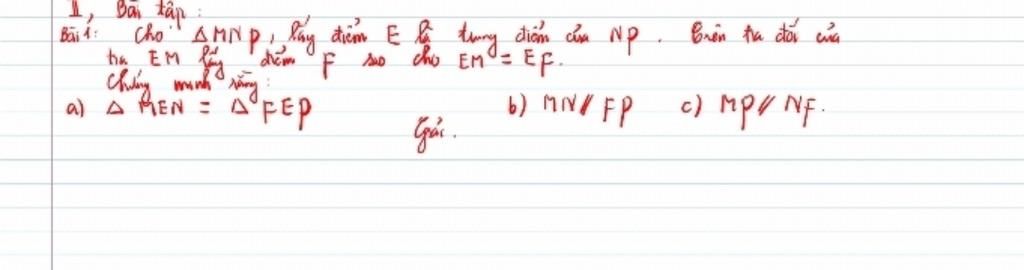 II, Bài tập :
Bài 1: Cho △MNP, lấy điểm E là trung điểm của NP. Trên tia đối của
tia EM lấy điểm F sao cho EM = EF.
Chứng minh rằng:
a) △ MEN = △ FEP b) MN // FP c) MP // NF.
Giải.